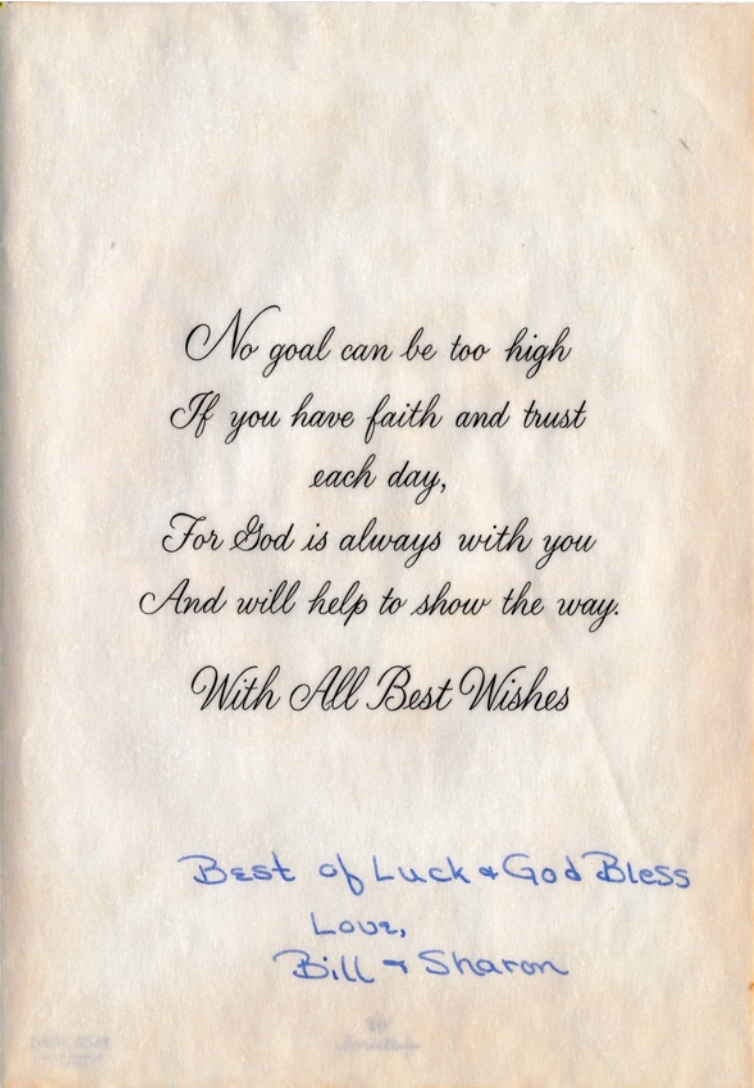 No goal can be too high
If you have faith and trust
each day,
For God is always with you
And will help to show the way.
With All Best Wishes
Best of Luck & God Bless
Love,
Bill & Sharon